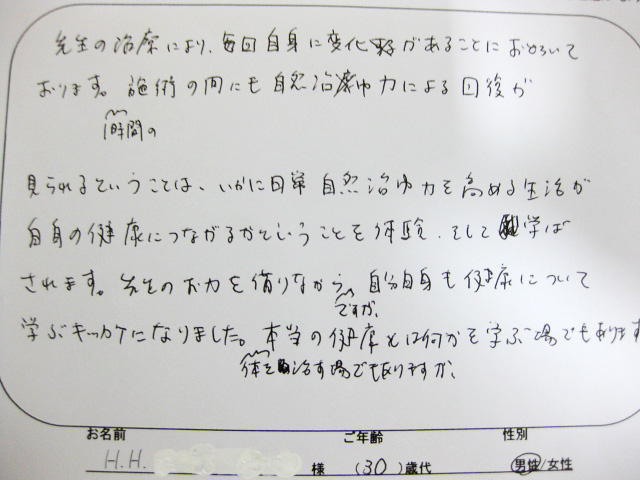 先生の治療により、毎回自身に変化がああることにおどろいて
おります。施術の間にも自然治ゆ力による回後が
1時間の
見られるということは、いかに日常自然治ゆ力を高める生活が
自身の健康につながるかということを体験、そして学ば
されます。先生のお力を借りながら、自分自身も健康について
ですが、
学ぶキッカケになりました。本当の健康とは何かを学ぶ場でもあります
体を治す場でもありますが、
お名前 ご年齢 性別
H.H. 様 (30)歳代 男性/女性